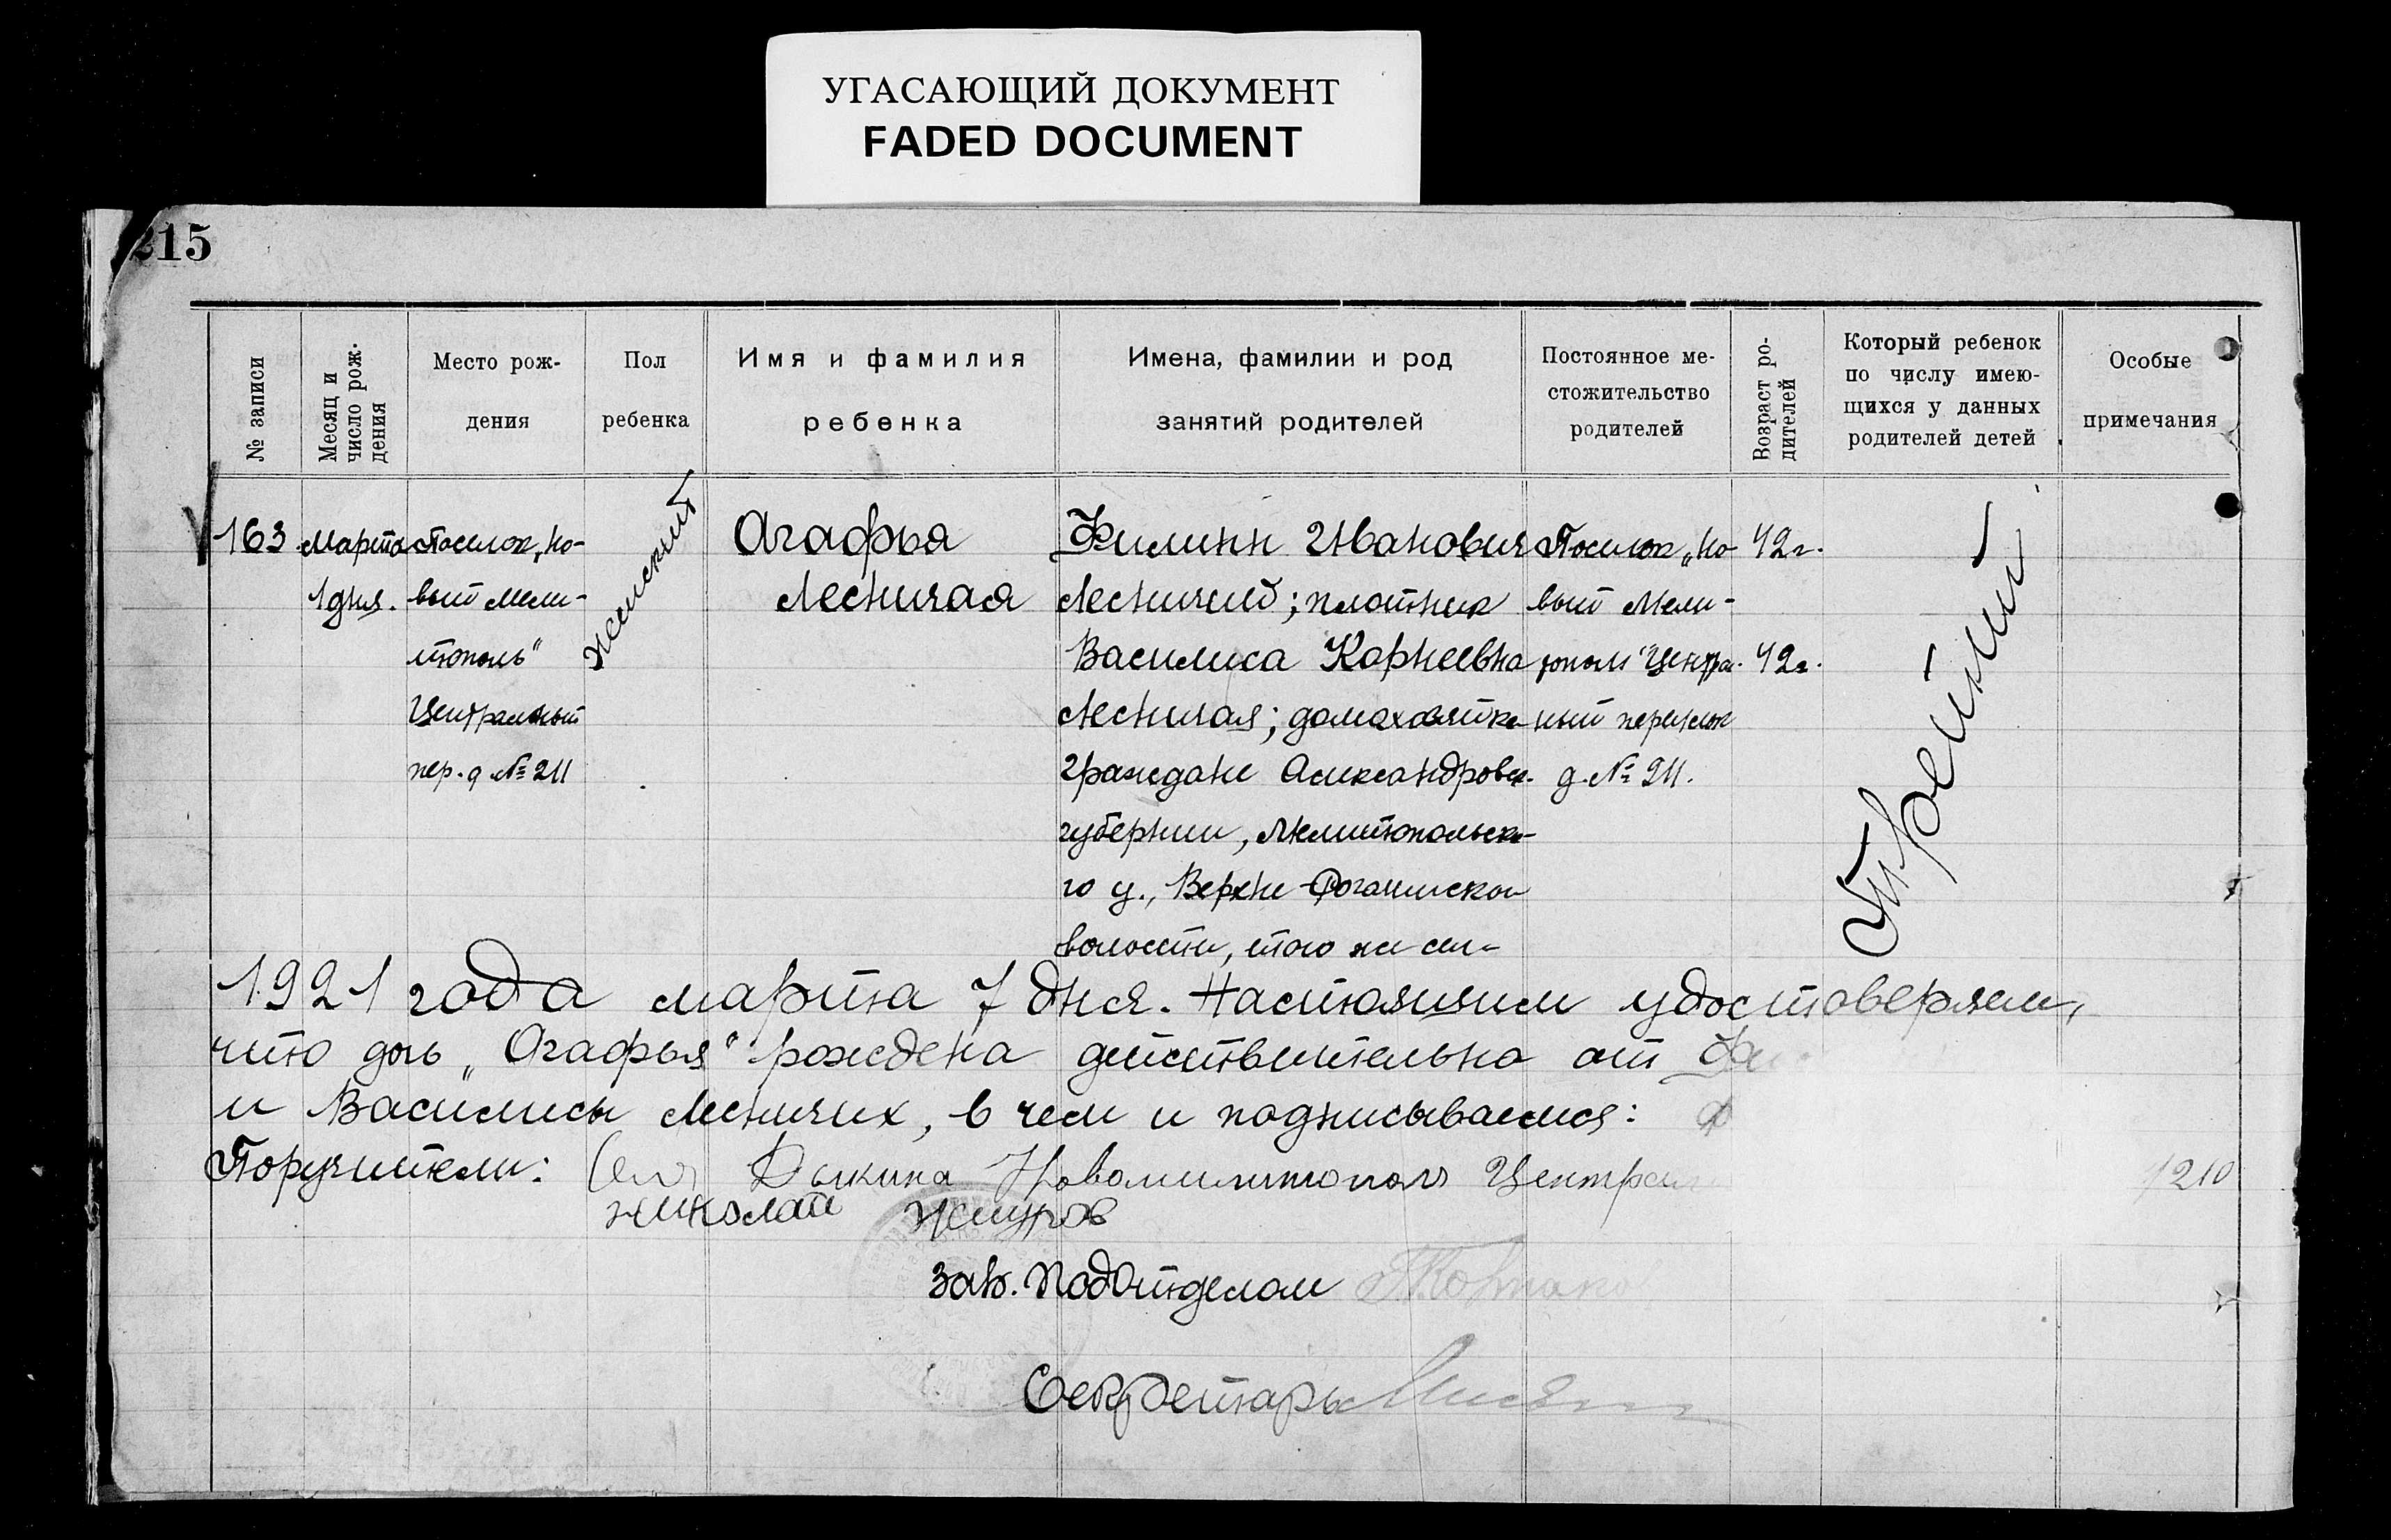 УГАСАЮЩИЙ ДОКУМЕНТ
FADED DOCUMENT
215
№ записи
Месяц и число рож-
дения
Место рож-
дения
Пол
ребенка
Имя и фамилия
ребенка
Имена, фамилии и род
занятий родителей
Постоянное ме-
стожительство
родителей
Возраст ро-
дителей
Который ребенок
по числу имею-
щихся у данных
родителей детей
Особые
примечания
163
Марта
1 дня.
Поселок „Но-
вый Мели-
тополь“
Центральный
пер. д № 211
Женский
Агафья
Лесничая
Филипп Иванович
Лесничий; плотник
Василиса Корнеевна
Лесничая; домохозяйка
граждане Александровск.
губернии, Мелитопольско-
го у., Верхне-Рогачикской
волости, того же села
Поселок „Но-
вый Мели-
тополь“ Централ.
ный переулок
д. № 211.
42 г.
42 г.
Третий
1921 года марта 7 дня. Настоящим удостоверяем,
что дочь „Агафья“ рождена действительно от
и Василисы Лесничих, в чем и подписываемся:
Поручители: Дыкина Новомелитополь
Николай
1210
Зав. Подотделом
Секретарь